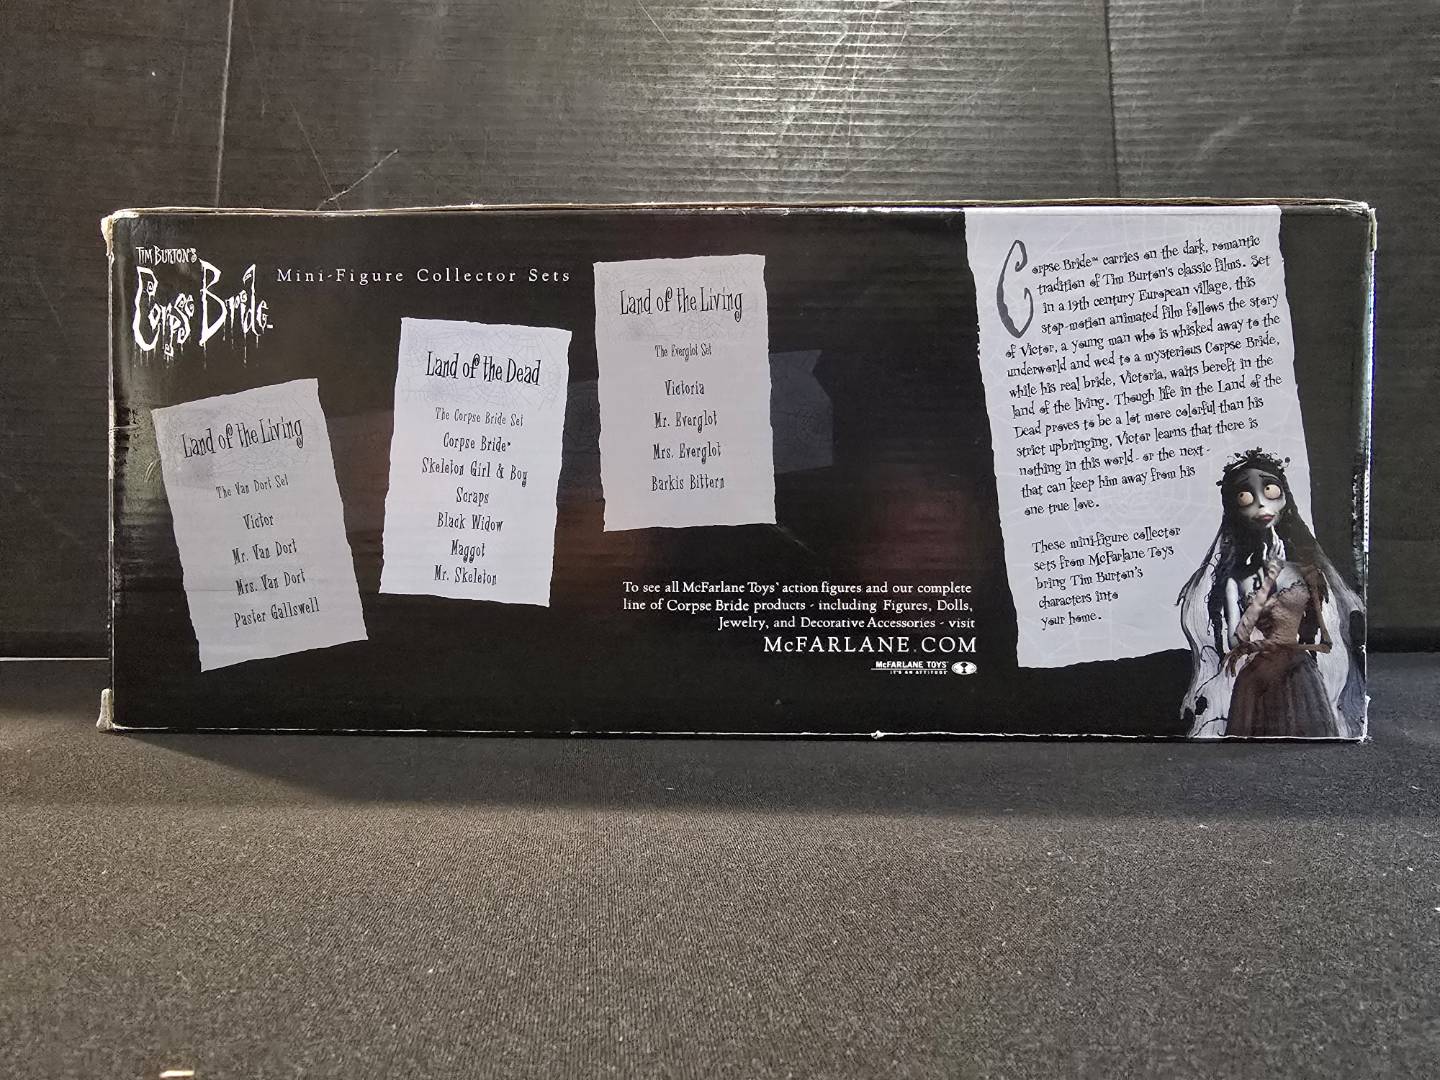 TIM BURTON'S
Corpse Bride™
Mini-Figure Collector Sets
Land of the Living
The Van Dort Set
Victor
Mr. Van Dort
Mrs. Van Dort
Paster Gallswell
Land of the Dead
The Corpse Bride Set
Corpse Bride™
Skeleton Girl & Boy
Scraps
Black Widow
Maggot
Mr. Skeleton
Land of the Living
The Everglot Set
Victoria
Mr. Everglot
Mrs. Everglot
Barkis Bittern
To see all McFarlane Toys' action figures and our complete
line of Corpse Bride products - including Figures, Dolls,
Jewelry, and Decorative Accessories - visit
McFARLANE.COM
McFARLANE TOYS
IT'S AN ATTITUDE
Corpse Bride™ carries on the dark, romantic
tradition of Tim Burton's classic films. Set
in a 19th century European village, this
stop-motion animated film follows the story
of Victor, a young man who is whisked away to the
underworld and wed to a mysterious Corpse Bride,
while his real bride, Victoria, waits bereft in the
land of the living. Though life in the Land of the
Dead proves to be a lot more colorful than his
strict upbringing, Victor learns that there is
nothing in this world - or the next -
that can keep him away from his
one true love.
These mini-figure collector
sets from McFarlane Toys
bring Tim Burton's
characters into
your home.